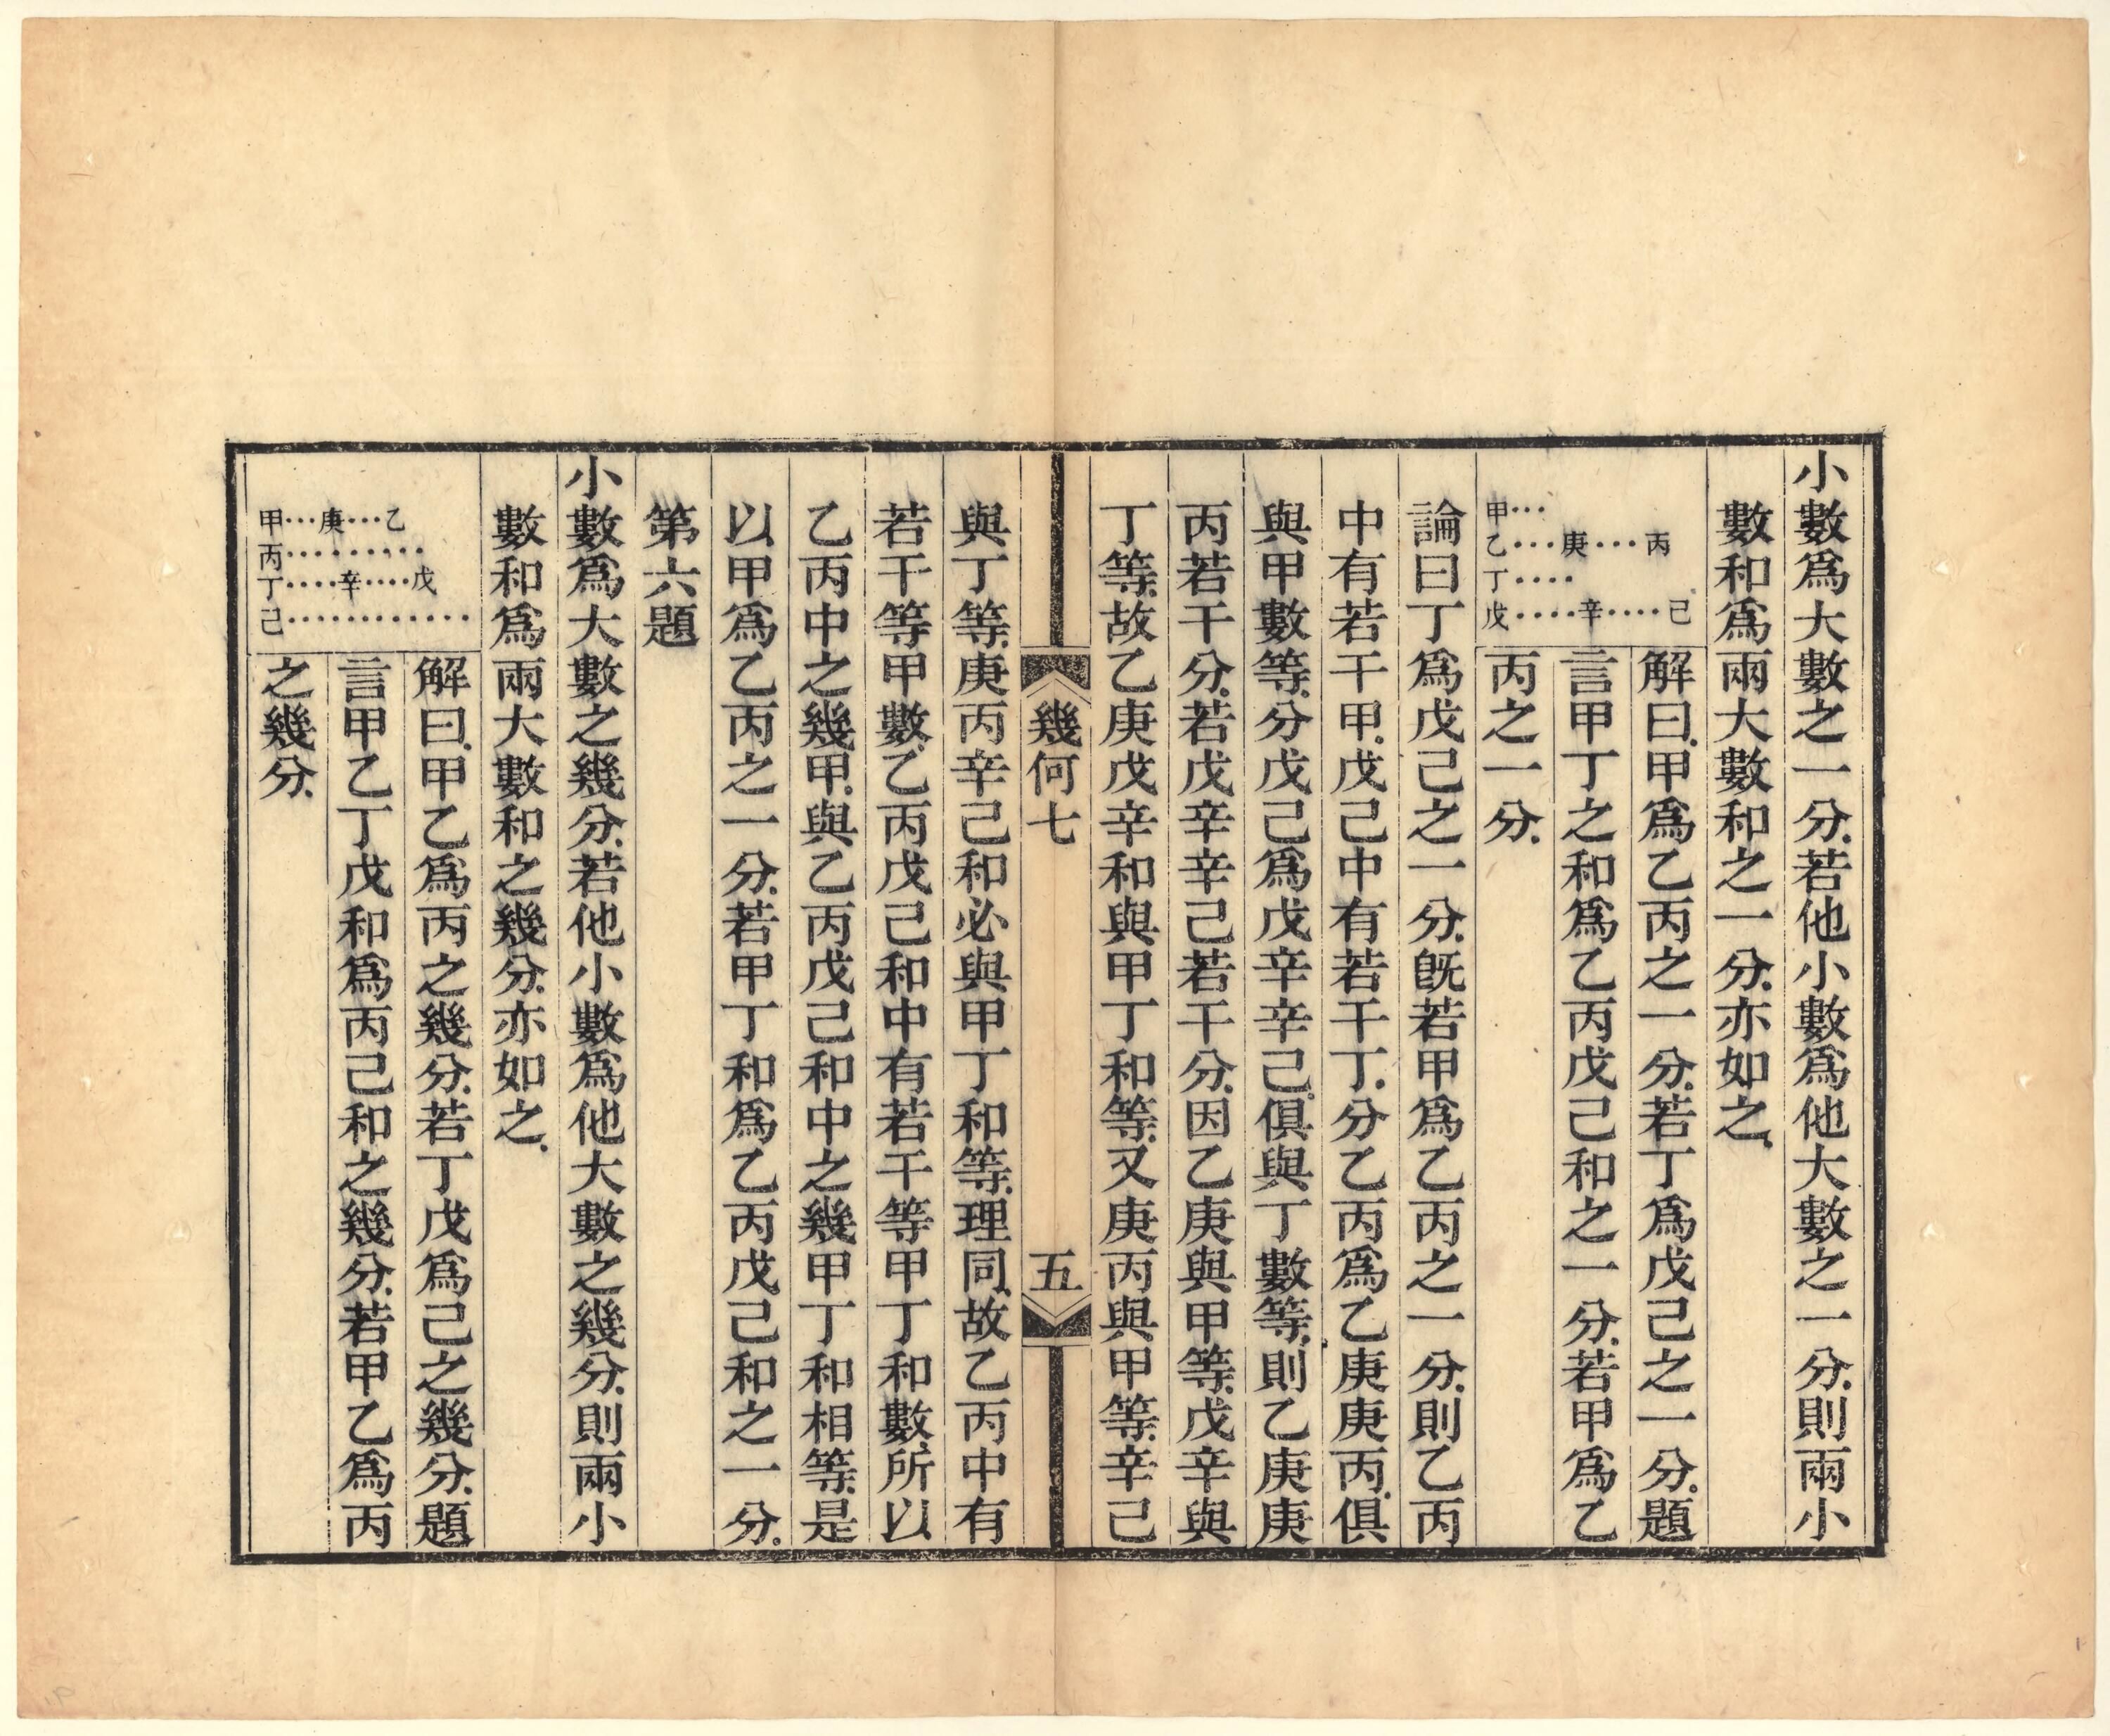 小數爲大數之一分.若他小數爲他大數之一分.則兩小
數和爲兩大數和之一分.亦如之.
甲···
乙····庚····丙
丁····
戊····辛····己
解曰.甲爲乙丙之一分.若丁爲戊己之一分.題
言甲丁之和爲乙丙戊己和之一分.若甲爲乙
丙之一分.
論曰丁爲戊己之一分.旣若甲爲乙丙之一分.則乙丙
中有若干甲.戊己中有若干丁.分乙丙爲乙庚庚丙.俱
與甲數等.分戊己爲戊辛辛己.俱與丁數等.則乙庚庚
丙若干分.若戊辛辛己若干分.因乙庚與甲等.戊辛與
丁等.故乙庚戊辛和與甲丁和等.又庚丙與甲等.辛己
幾何七
五
與丁等.庚丙辛己和必與甲丁和等.理同.故乙丙中有
若干等甲數.乙丙戊己和中有若干等甲丁和數.所以
乙丙中之幾甲.與乙丙戊己和中之幾甲丁和相等.是
以甲爲乙丙之一分.若甲丁和爲乙丙戊己和之一分.
第六題
小數爲大數之幾分.若他小數爲他大數之幾分.則兩小
數和爲兩大數和之幾分.亦如之.
甲···庚···乙
丙·········
丁····辛····戊
己············
解曰.甲乙爲丙之幾分.若丁戊爲己之幾分.題
言甲乙丁戊和爲丙己和之幾分.若甲乙爲丙
之幾分.